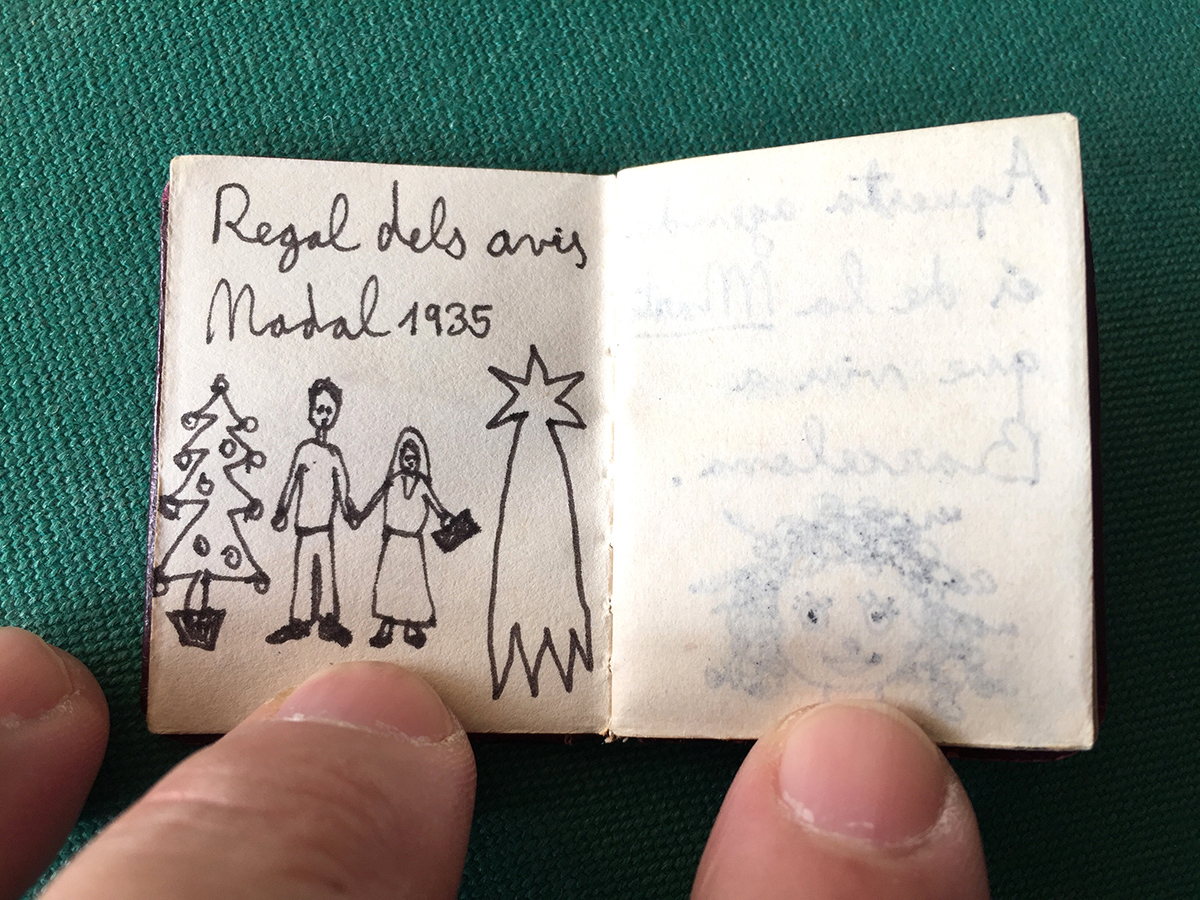 Regal dels avis
Nadal 1935
Aquesta
és de la
que viu a
Barcelona.